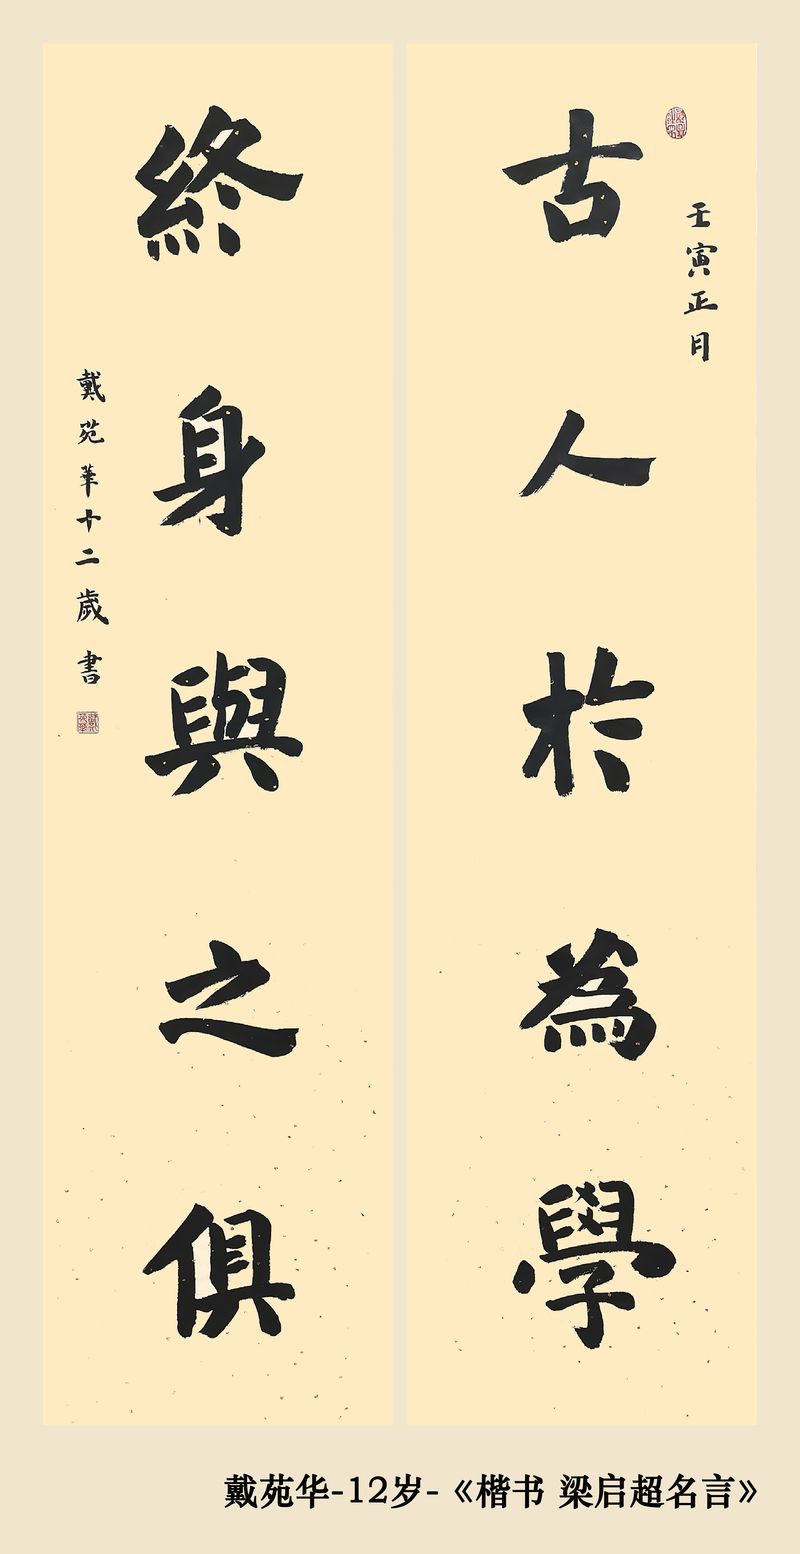 壬寅正月
古人於為學
終身與之俱
戴苑華十二歲書
戴苑华-12岁-《楷书 梁启超名言》